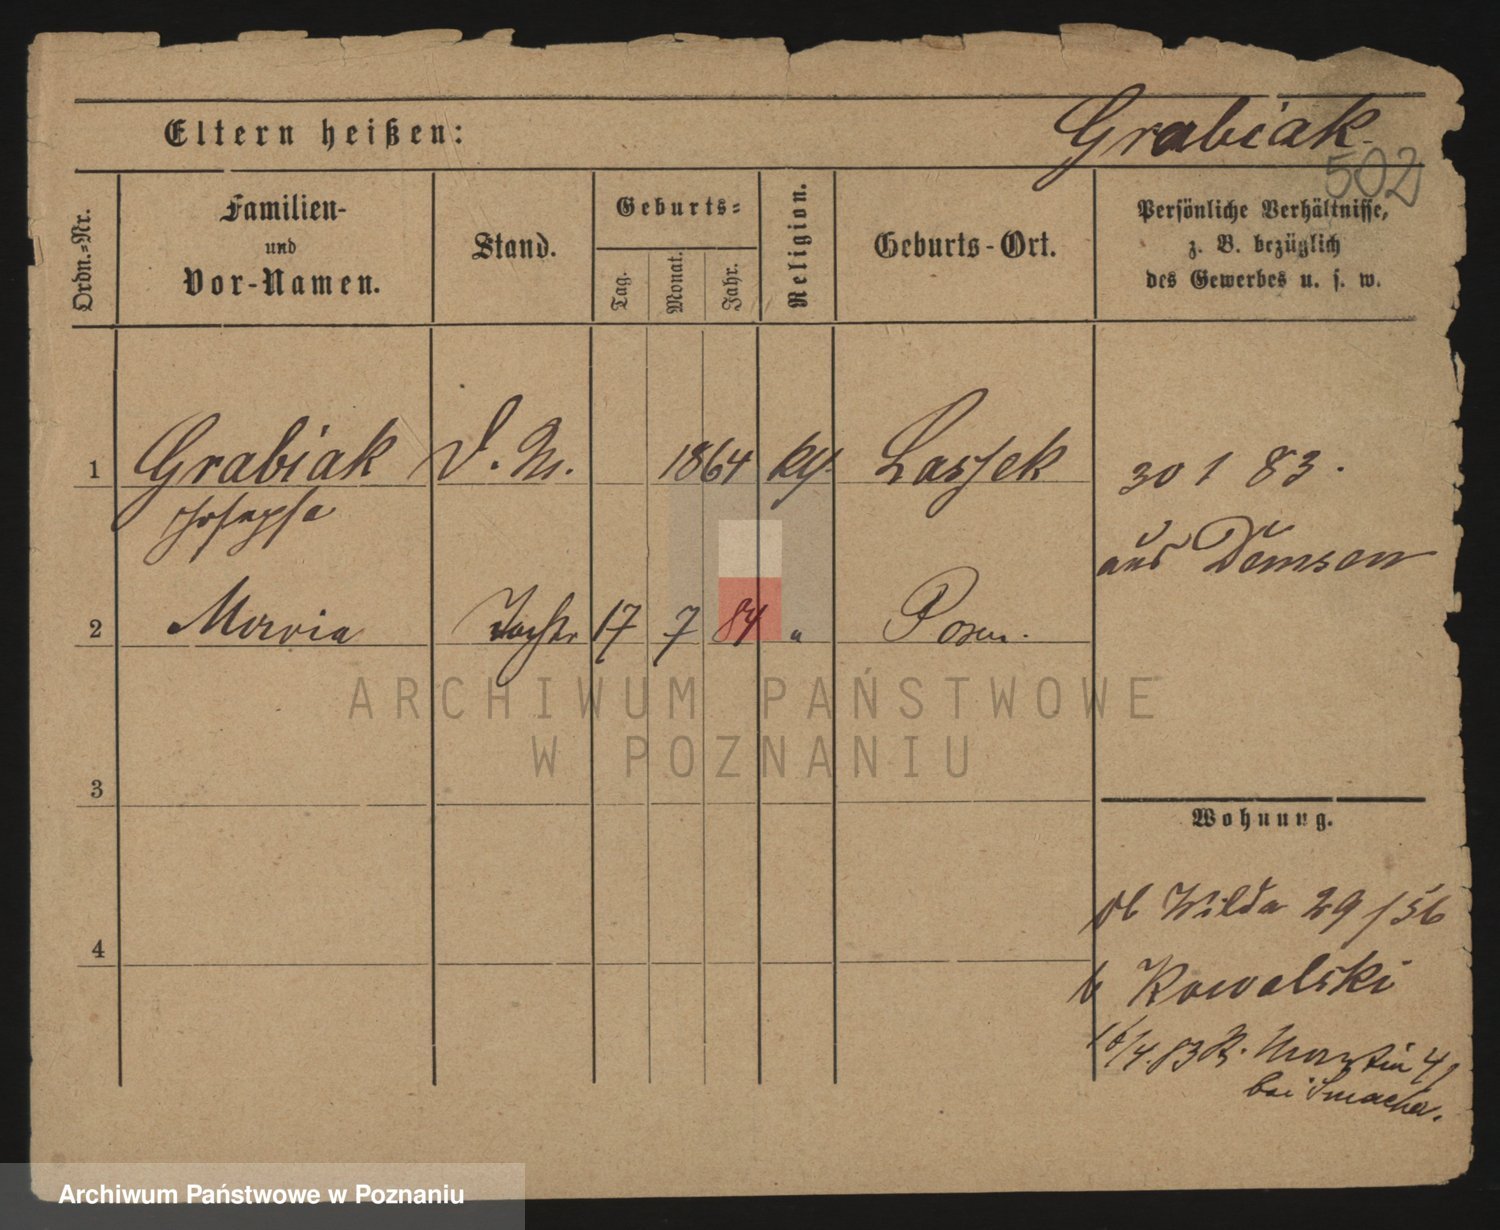 Eltern heißen:
Grabiak
502
Ordn.-Nr.
Familien-
und
Vor-Namen.
Stand.
Geburts-
Tag.
Monat.
Jahr.
Religion.
Geburts-Ort.
Persönliche Verhältnisse,
z. B. bezüglich
des Gewerbes u. s. w.
1 Grabiak D. M. 1864 Lassek
Josepha
30 1 83.
aus Demsen
2 Maria Tochter 17 7 84 " Posen.
ARCHIWUM PAŃSTWOWE
W POZNANIU
3
Wohnung.
4
Wilda 29/
b Kowalski
/4.83 Martin 41
bei
Archiwum Państwowe w Poznaniu